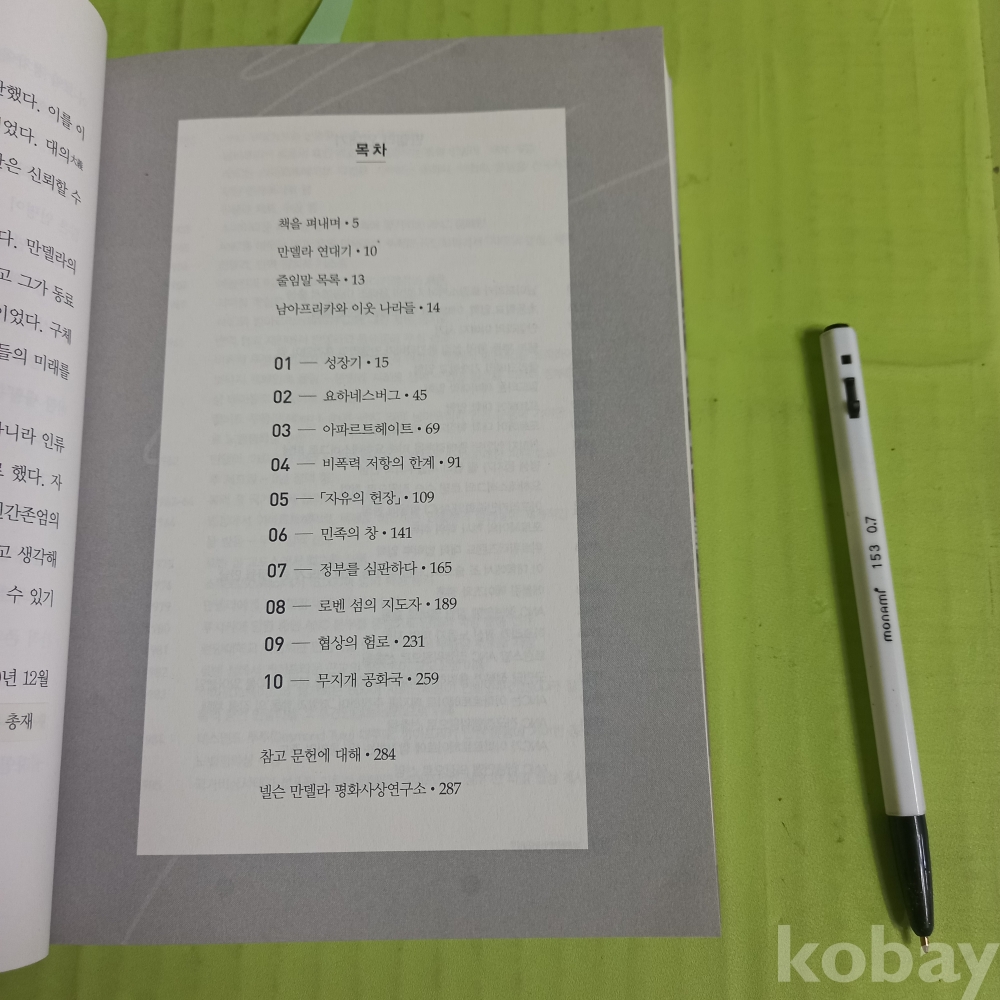 단했다. 이를 이
었다. 대의大義
은 신뢰할 수
다. 만델라의
고 그가 동료
이었다. 구체
들의 미래를
아니라 인류
했다. 자
인간존엄의
고 생각해
수 있기
년 12월
총재
목차
책을 펴내며 • 5
만델라 연대기 • 10
줄임말 목록 • 13
남아프리카와 이웃 나라들 • 14
01 — 성장기 • 15
02 — 요하네스버그 • 45
03 — 아파르트헤이트 • 69
04 — 비폭력 저항의 한계 • 91
05 — 「자유의 헌장」 • 109
06 — 민족의 창 • 141
07 — 정부를 심판하다 • 165
08 — 로벤 섬의 지도자 • 189
09 — 협상의 험로 • 231
10 — 무지개 공화국 • 259
참고 문헌에 대해 • 284
넬슨 만델라 평화사상연구소 • 287
monami 153 0.7
kobay